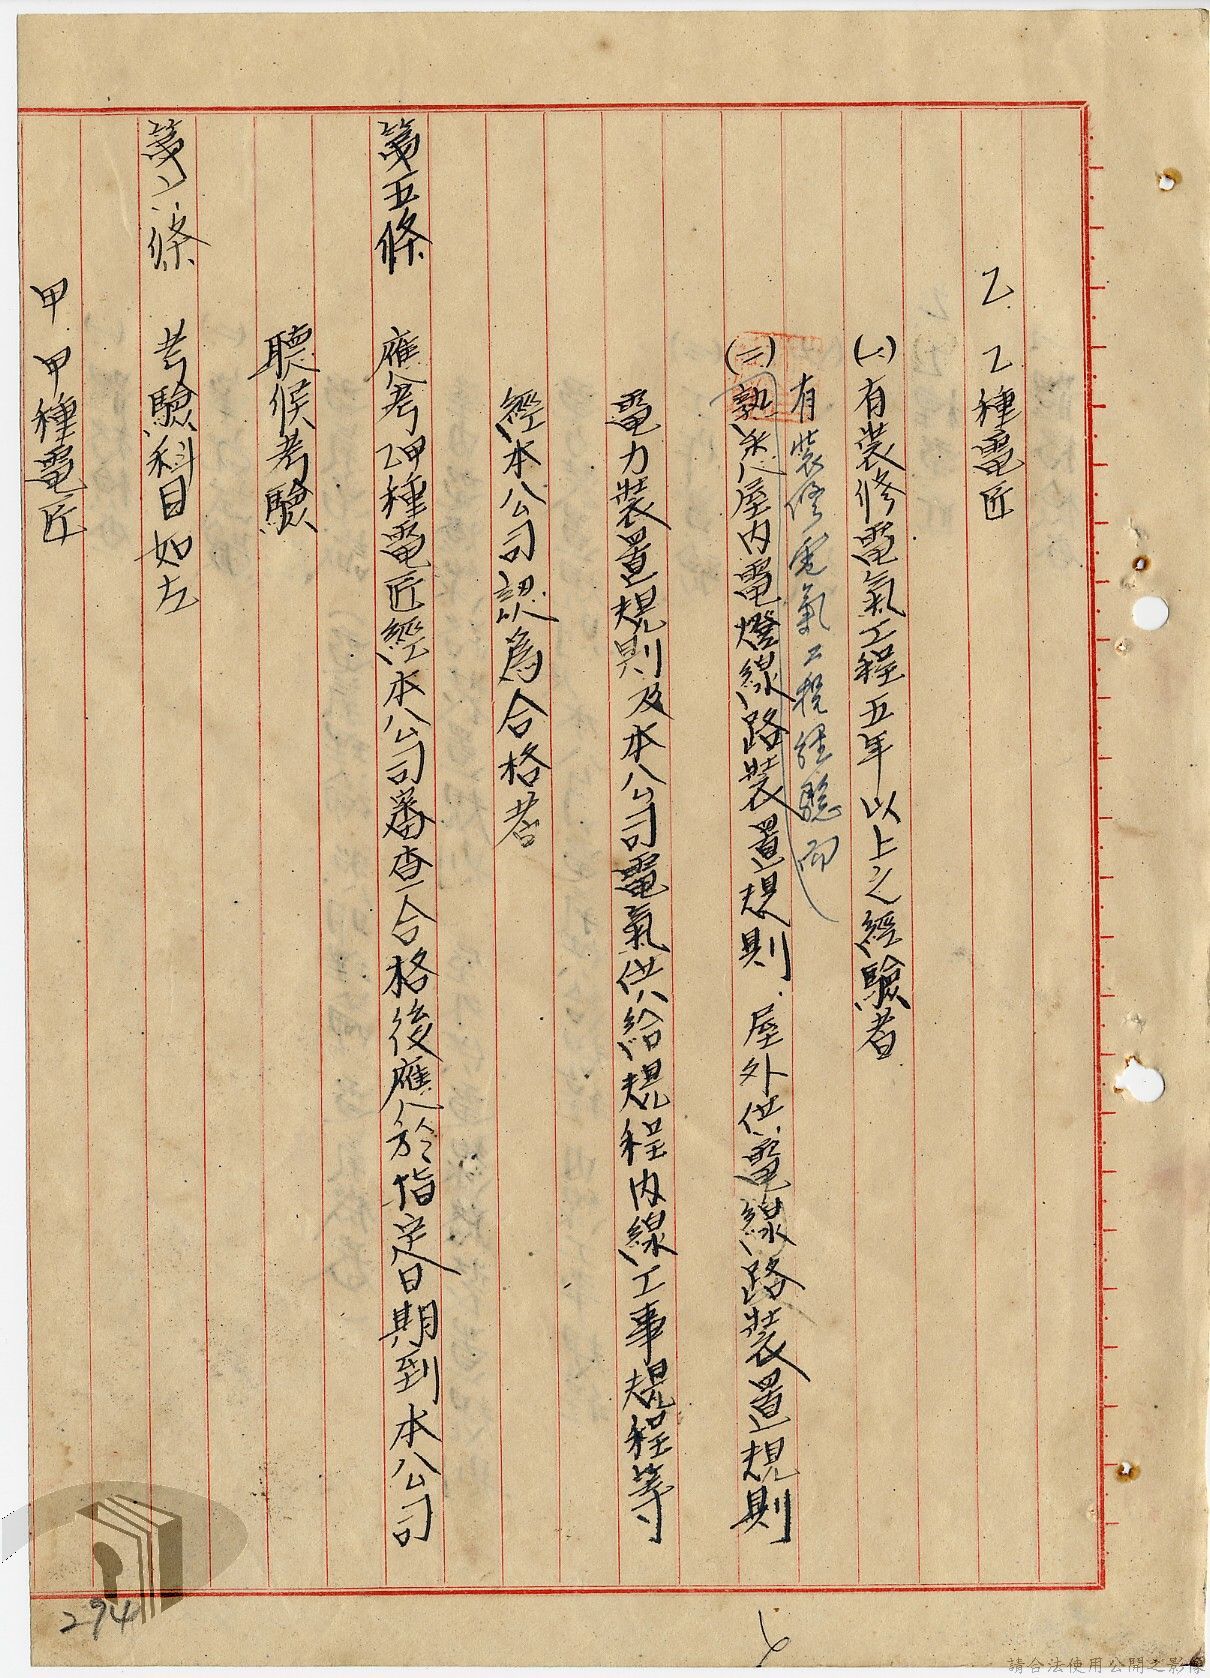 乙 乙種電匠
(一)有裝修電氣工程五年以上之經驗者
有裝修電氣工程經驗而
(二)熟悉屋內電燈線路裝置規則 屋外供電線路裝置規則
電力裝置規則及本公司電氣供給規程內線工事規程等
經本公司認為合格者
第五條 應考甲乙種電匠經本公司審查合格後應於指定日期到本公司
聽候考驗
第六條 考驗科目如左
甲 甲種電匠
294
請合法使用公開之影像